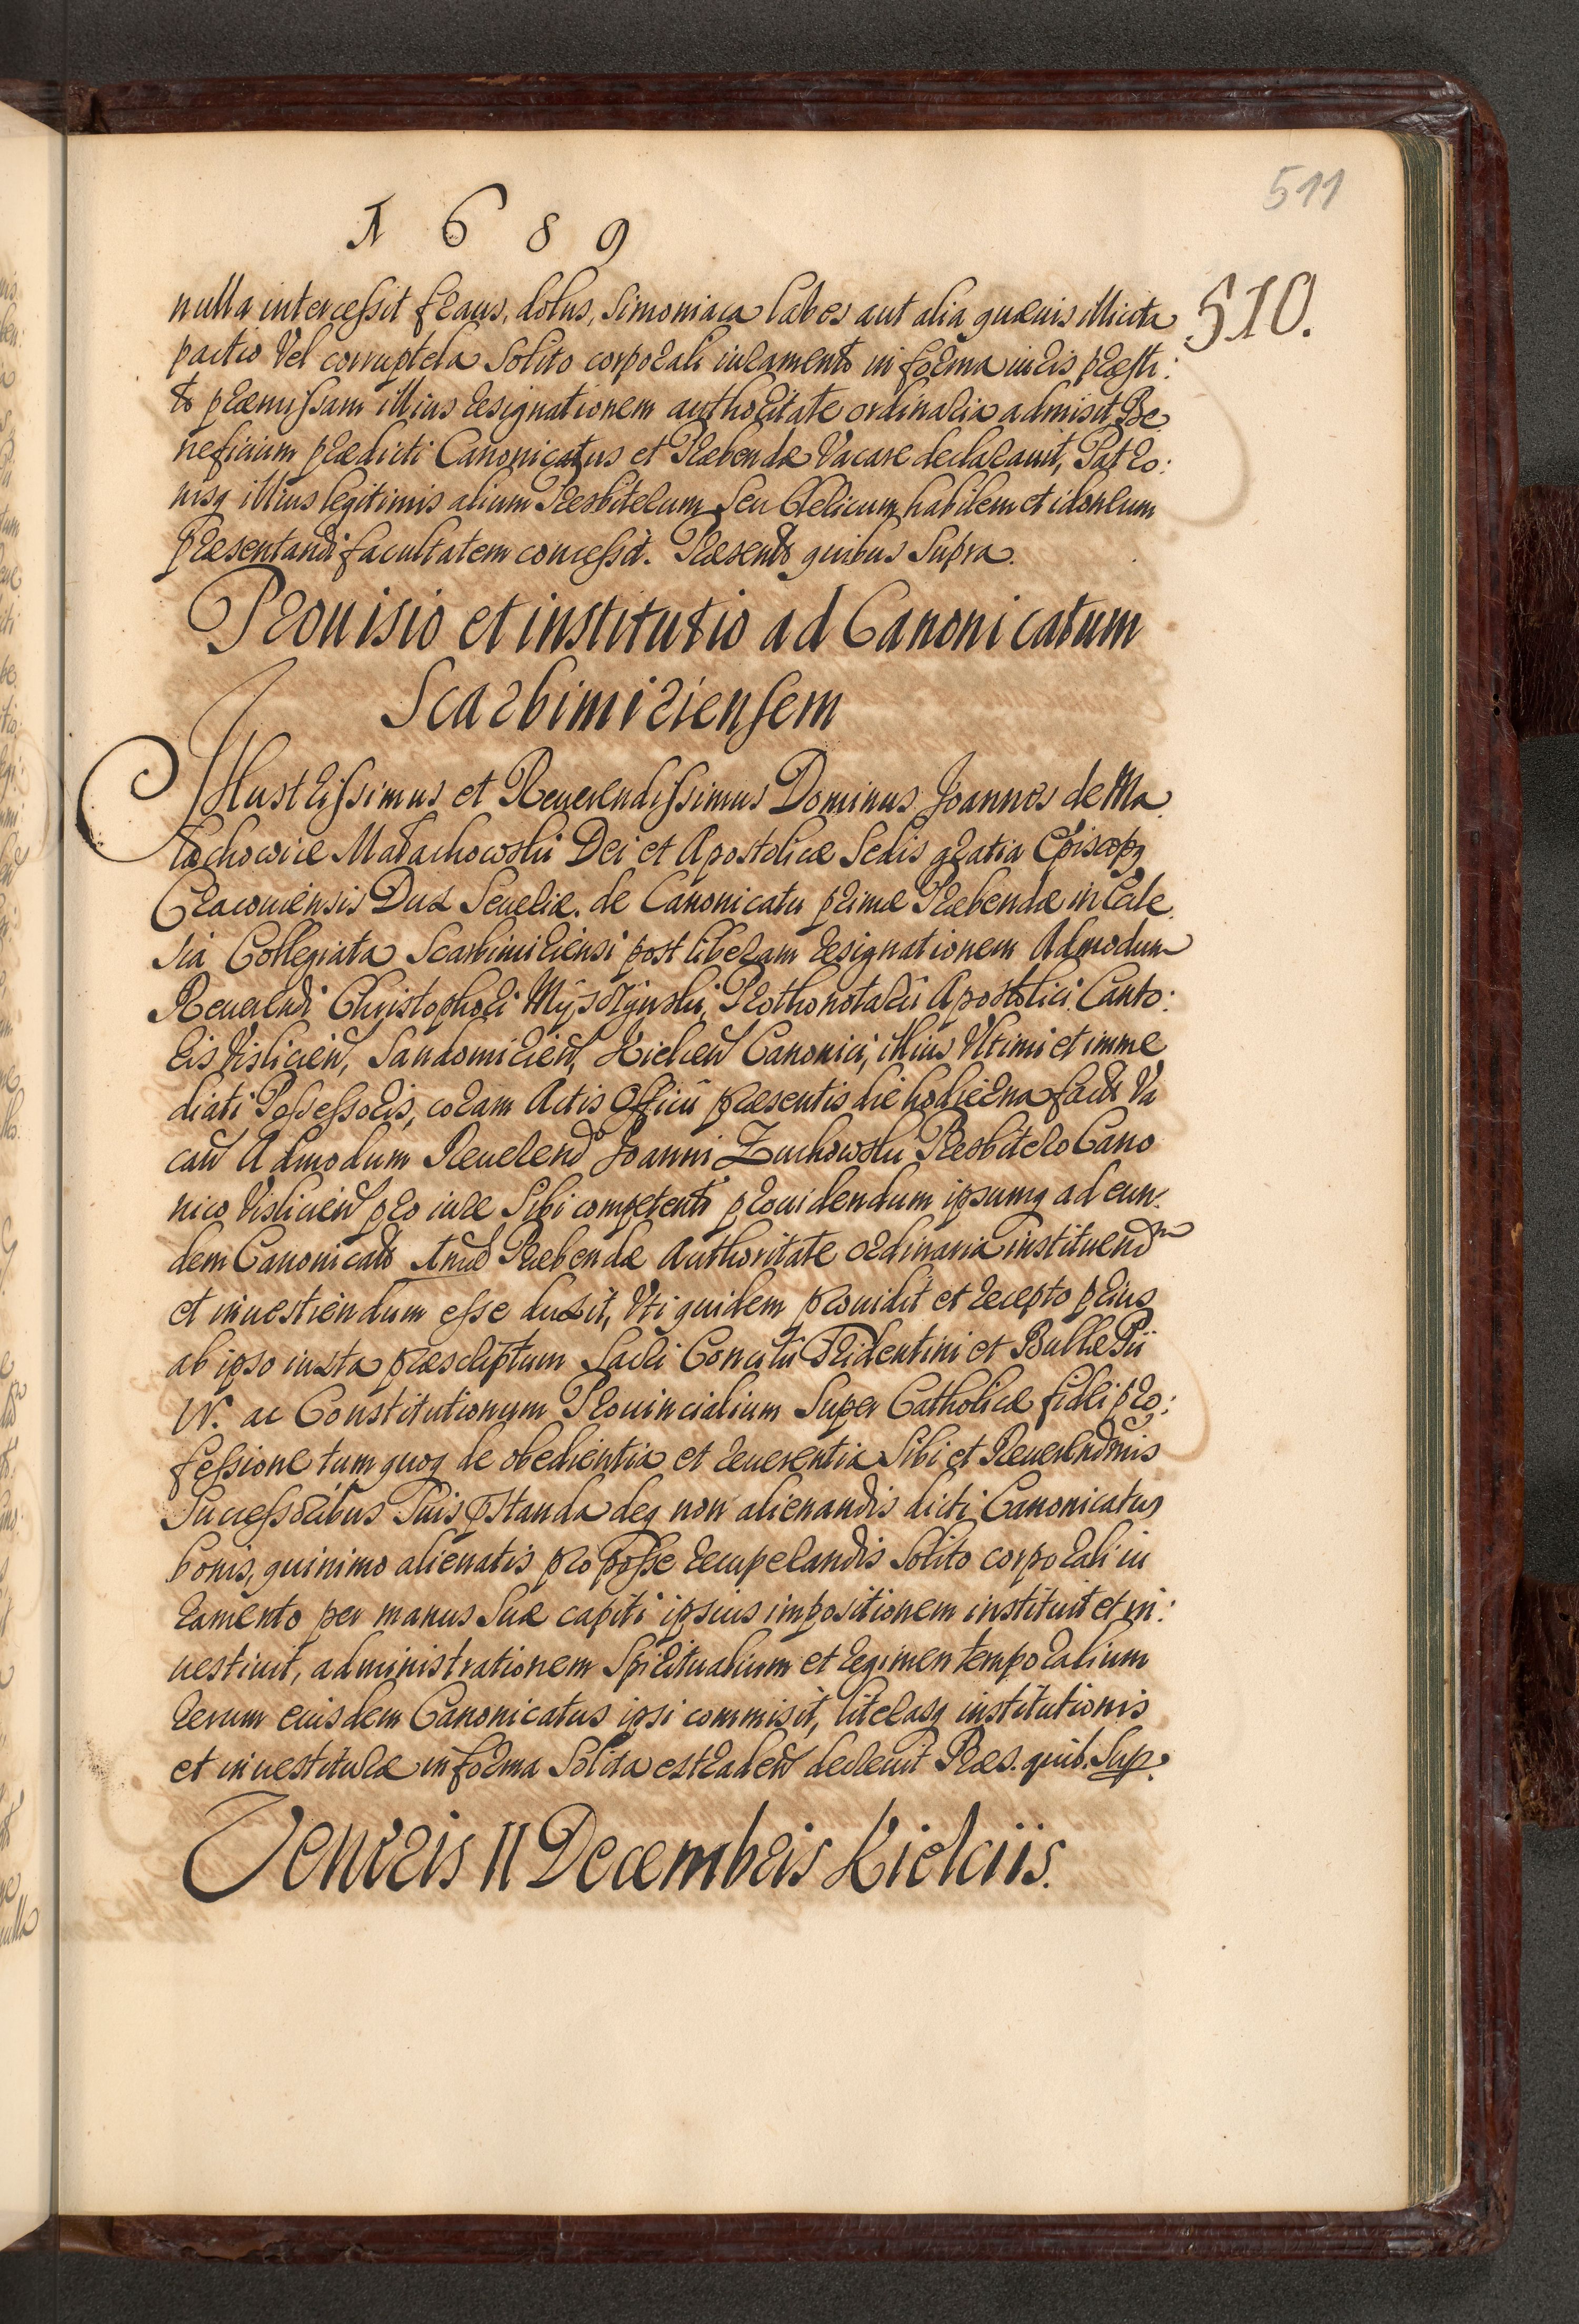 511
1689
510.
nulla intercessit fraus, dolus, Simoniaca labes aut alia quæuis illicita
pactio Vel corruptela Solito corporali iuramento in forma iuris præsti:
to præmissam illius resignationem authoritate ordinaria admisit Be
neficium prædicti Canonicatus et Præbendæ Vacare declarauit, Patro:
nisq illius legitimis alium Presbiterum Seu Clericum habilem et idoneum
præsentandi facultatem concessit. Præsentb quibus Supra.
Prouisio et institutio ad Canonicatum
Scarbimiriensem
Illustrissimus et Reuerendissimus Dominus Joannes de Ma
łachowice Małachowski Dei et Apostolicæ Sedis gratia Episcopq
Cracouiensis Dux Seueriæ. de Canonicatu primæ Præbendæ in Eccle
sia Collegiata Scarbimiriensi post liberam resignationem Admodum
Reuerendi Christophori Myszyński, Prothonotarii Apostolici. Canto:
ris Vislicień, Sandomirień, Kielceń Canonici, illius Vltimi et imme
diati Possessoris, coram Actis Officii præsentis die hodierna factb Va
cań Admodum Reuerendo Joanni Zuchowski Presbitero Cano
nico Vislicień pro iure Sibi competenti prouidendum ipsumq ad eun:
dem Canonicatb Præbendæ Authoritate ordinaria instituendm
et inuestiendum esse duxit, Vti quidem prouidit et recepto prius
ab ipso iuxta præscriptum Sacri Concilii Tridentini et Bullæ Pii
IV. ac Constitutionum Prouincialium Super Catholicæ fidei pro:
fessione tum quoq de obedientia et reuerentia Sibi et Reuerendmis
Successoribus Suis præstanda deq non alienandis dicti Canonicatus
bonis, quinimo alienatis pro posse recuperandis Solito corporali iu
ramento per manus Suæ capiti ipsius impositionem instituit et in:
uestiuit, administrationem Spiritualium et regimen temporalium
rerum eiusdem Canonicatus ipsi commisit, literasq institutionis
et inuestituræ in forma Solita extradeń decreuit Præs. quib. Sup.
Veneris II Decembris Kielciis.